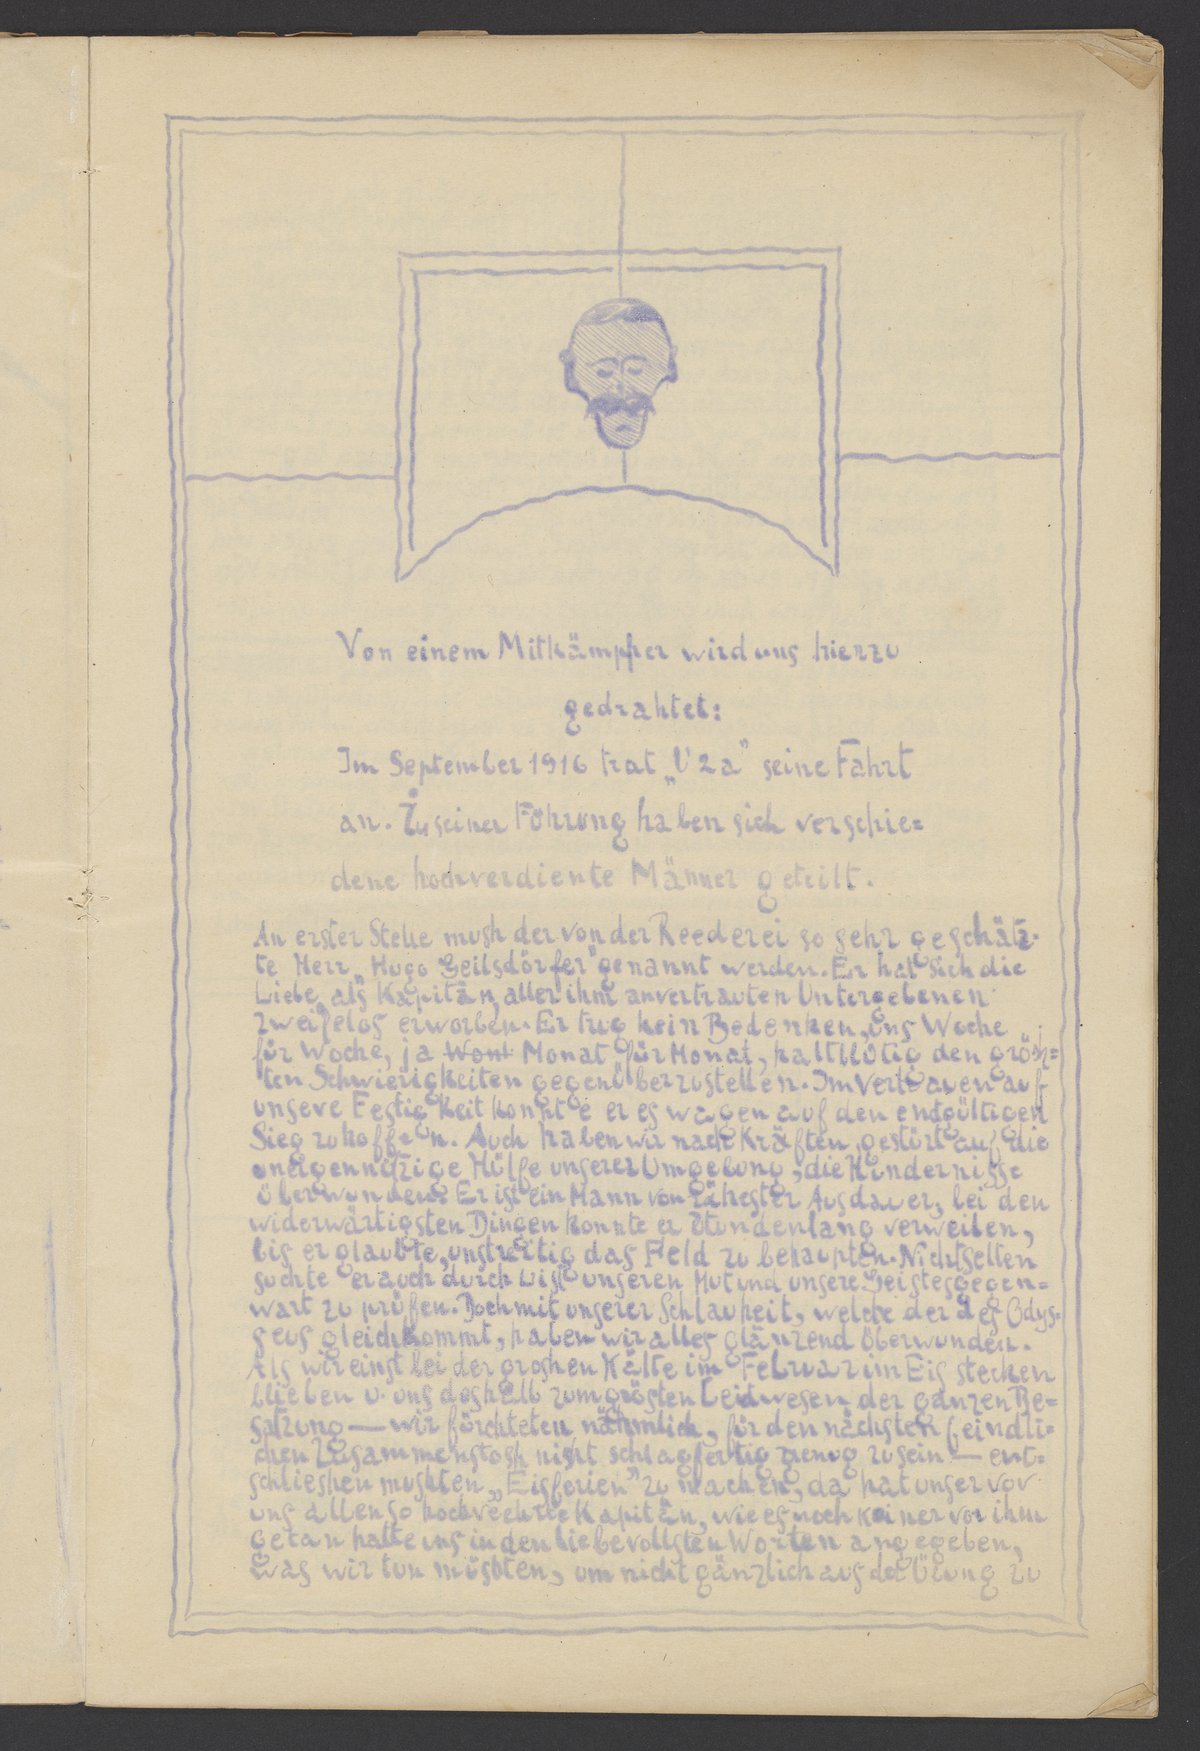 Von einem Mitkämpfer wird uns hierzu
gedrahtet:
Im September 1916 trat „U 2a" seine Fahrt
an. Zu seiner Führung haben sich verschie=
dene hochverdiente Männer geteilt.
An erster Stelle mush der von der Reederei so sehr geschätz-
te Herr „Hugo Geilsdörfer" genannt werden. Er hat sich die
Liebe als Kapitän aller ihm anvertrauten Untergebenen
zweifelos erworben. Er trug kein Bedenken, uns Woche
für Woche, ja Wont Monat für Monat, kaltblütig den grösh=
ten Schwierigkeiten gegenüberzustellen. Im Vertrauen auf
unsere Festigkeit konnte er es wagen auf den endgültigen
Sieg zu hoffen. Auch haben wir nach Kräften, gestürt auf die
uneigennützige Hülfe unserer Umgebung, die Hindernisse
überwunden. Er ist ein Mann von zähester Ausdauer, bei den
widerwärtigsten Dingen konnte er Stundenlang verweilen,
bis er glaubte, unstreitig das Feld zu behaupten. Nicht selten
suchte er auch durch List unseren Mut und unsere Geistesgegen=
wart zu prüfen. Doch mit unserer Schlauheit, welche der des Odys-
seus gleichkommt, haben wir alles glänzend überwunden.
Als wir einst bei der groshen Kälte im Februar im Eis stecken
blieben u. uns deshalb zum grösten Leidwesen der ganzen Be=
satzung — wir fürchteten nähmlich, für den nächsten feindli=
chen Zusammenstosh nicht schlagfertig genug zu sein — ent=
schlieshen mushten, „Eisferien" zu machen, da hat unser von
uns allen so hochverehrte Kapitän, wie es noch keiner vor ihm
getan hatte uns in den liebevollsten Worten angegeben,
was wir tun müshten, um nicht gänzlich aus der Übung zu